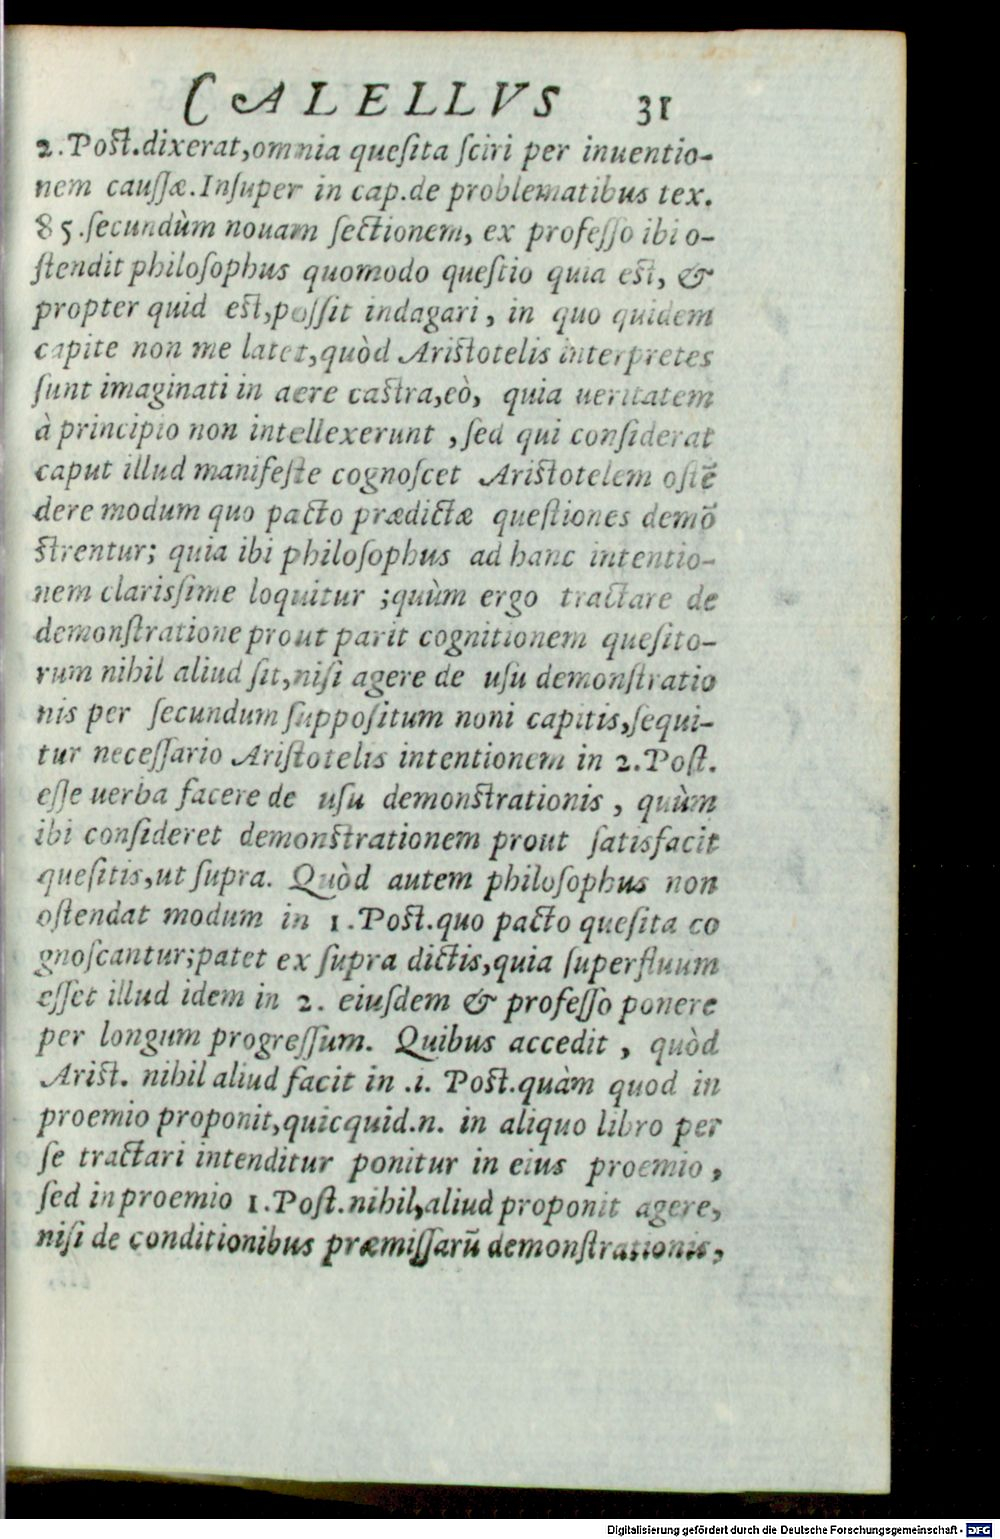 CALELLVS 31
2. Post. dixerat, omnia quesita sciri per inuentio-
nem caussæ. Insuper in cap. de problematibus tex.
85. secundùm nouam sectionem, ex professo ibi o-
stendit philosophus quomodo questio quia est, &
propter quid est, possit indagari, in quo quidem
capite non me latet, quòd Aristotelis interpretes
sunt imaginati in aere castra, eò, quia ueritatem
à principio non intellexerunt, sed qui considerat
caput illud manifeste cognoscet Aristotelem ostẽ
dere modum quo pacto prædictæ questiones demõ
strentur; quia ibi philosophus ad hanc intentio-
nem clarissime loquitur; quùm ergo tractare de
demonstratione prout parit cognitionem quesito-
rum nihil aliud sit, nisi agere de usu demonstratio
nis per secundum suppositum noni capitis, sequi-
tur necessario Aristotelis intentionem in 2. Post.
esse uerba facere de usu demonstrationis, quùm
ibi consideret demonstrationem prout satisfacit
quesitis, ut supra. Quòd autem philosophus non
ostendat modum in 1. Post. quo pacto quesita co
gnoscantur; patet ex supra dictis, quia superfluum
esset illud idem in 2. eiusdem & professo ponere
per longum progressum. Quibus accedit, quòd
Arist. nihil aliud facit in .i. Post. quàm quod in
proemio proponit, quicquid .n. in aliquo libro per
se tractari intenditur ponitur in eius proemio,
sed in proemio 1. Post. nihil, aliud proponit agere,
nisi de conditionibus præmissarũ demonstrationis,
Digitalisierung gefördert durch die Deutsche Forschungsgemeinschaft - DFG